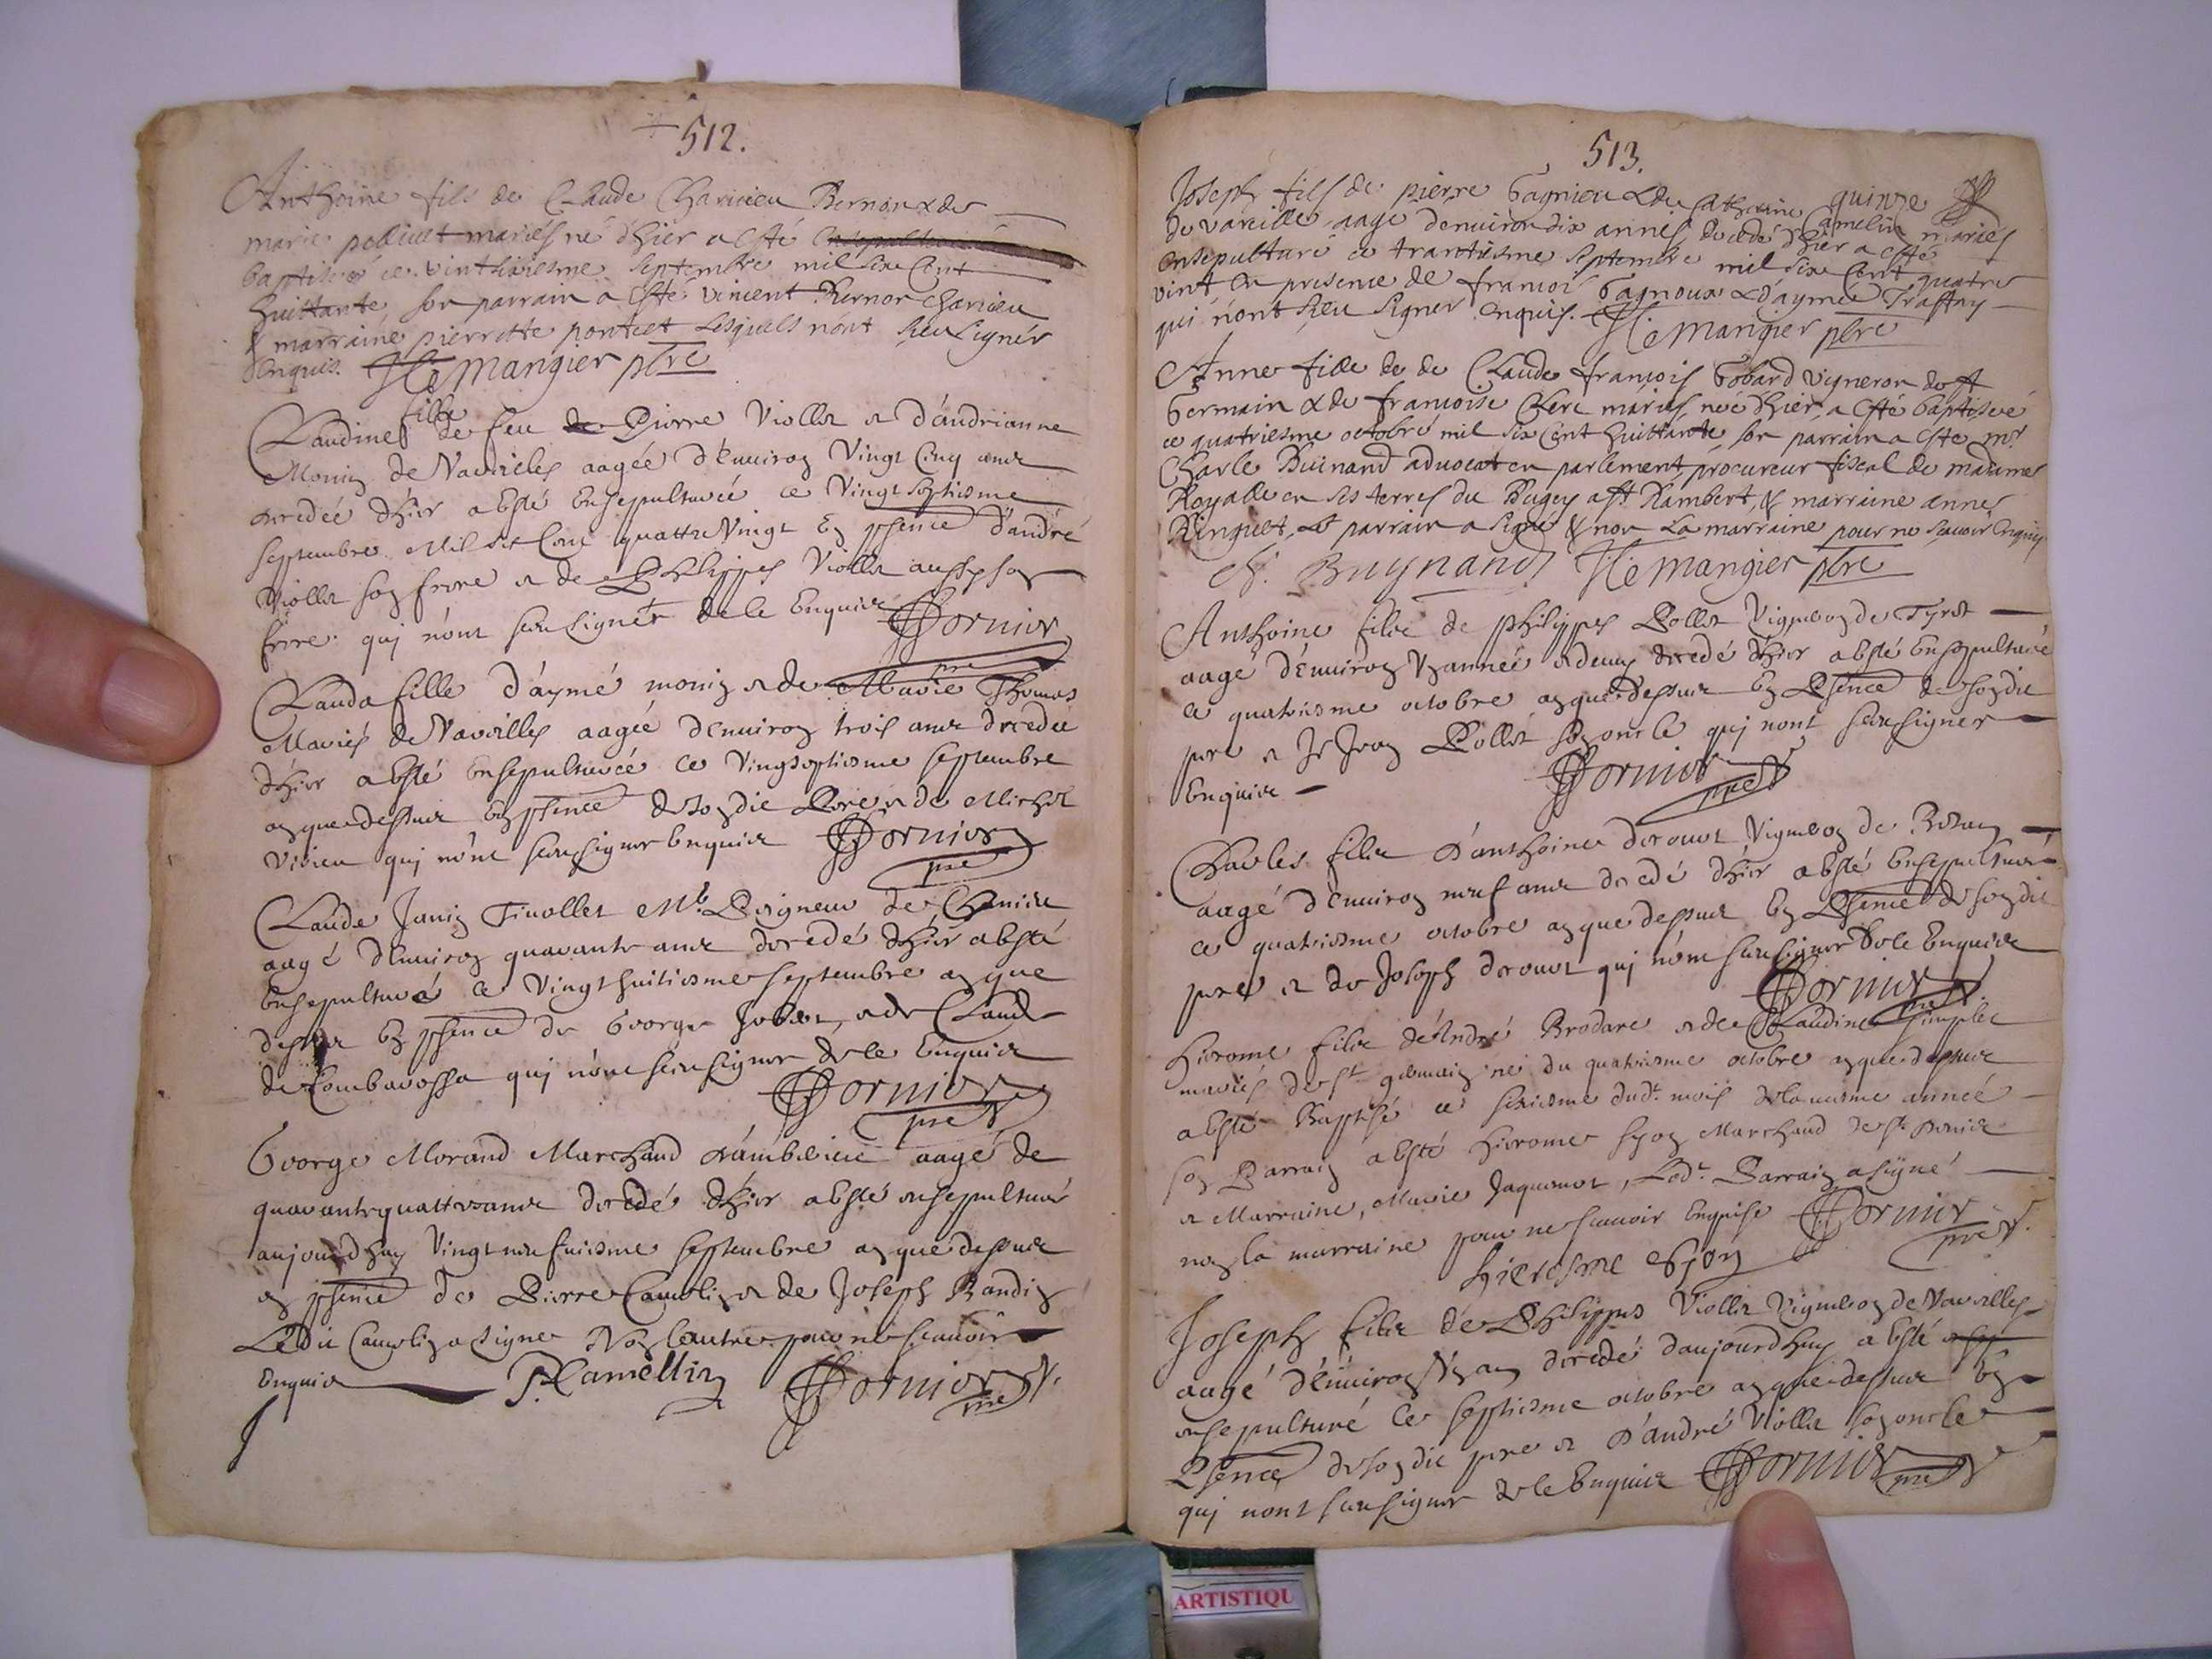 512.
Anthoine fils de Claude Charvieu Bernon & de
marie pelluet mariés né dhier a esté
baptisé ce vinthuiesme septembre mil six Cent
huittante, son parrain a esté vincent Bernon Charvieu
& marraine pierrette pontcet lesquels n'ont sceu signér
enquis. He mangier pbre
fille
Claudine de feu Pierre Viollet et d'andrianne
Monin de Vaveilles aagée d'Enuiron Vingt Cinq ans
decedée dhier a Esté Ensepulturée ce Vingt septiesme
septembre Mil six Cent quattre Vingt En pñence d'andré
Viollet son frere et de Philippes Viollet aussy son
frere qui n'ont sceu signér de ce Enquis Dornier
pre
Clauda fille d'aymé monin et de Marie Thomas
Mariés de Vaveilles aagée d'Enuiron trois ans decedée
dhier a Esté Ensepulturée ce Vingseptiesme septembre
an que dessus En pñence de son dit Pere et de Michel
qui n'ont sceu signer Enquis Dornier
pre
Claude Janin Tivollet Me. Peigneur de Chanvre
aagé d'Enuiron quarante ans decedé dhier a Esté
Ensepulturé ce Vingt huitiesme septembre an que
dessus En pñence de George et de Claude
de Combarossa qui n'ont sceu signer de ce Enquis
Dornier
pre
George Morand Marchand d'ambérieu aagé de
quarante quattre ans decedé dhier a Esté ensepulturé
aujourdhuy Vingt neufuiesme septembre an que dessus
en pñence de Pierre Camelin et de Joseph Bandin
Ledit Camelin a signé Non l'autre pour ne scauoir
Enquis P. Camellin Dornier
pre
513.
Joseph fils de pierre Gagnieu & de Catherine quinze
Camelin mariés
de vareille aagé denuiron dix annes, decedé dhier a esté
ensepulturé ce trantiesme septembre mil six Cent quatre
vint en presence de francois Gagnoux & d'aymé Traffay
qui n'ont sceu signer enquis. He mangier pbre
Anne fille de de Claude francois Gobard vigneron de st
Germain & de francoise Clerc mariés, née dhier, a esté baptisée
ce quatriesme octobre mil six Cent huittante son parrain a este mr
Charle Buinand advocat en parlement, procureur fiscal de madame
Royalle en ses terres du Bugey a st Rambert, & marraine anne
Ringuet, Le parrain a signé & non la marraine pour ne scavoir Enquis
C. Buynand He mangier pbre
Anthoine filz de philippes Pollet Vigneron de Tyret
aagé d'Enuiron année et demy decedé dhier a Esté Ensepulturé
ce quatriesme octobre an que dessus En Pñence de son dit
pere et Jean Pollet son oncle qui nont sceu signer
Enquis Dornier
pre
Charles filz d'anthoine derouet Vigneron de
aagé d'Enuiron neuf ans decedé dhier a Esté Ensepulturé
ce quatriesme octobre an que dessus En Pñence de son dit
pere et de Joseph derouet qui n'ont sceu signer de ce Enquis
Dornier
pre
Hierome filz de André Brodare et de Claudine
mariés de St germain né du quatriesme octobre an que dessus
a Esté Baptisé ce sixiesme dudt. mois de la mesme année
son Parrain a Esté Hierome Marchand de St Denis
et Marraine, Marie Jaquemet, Ledt. Parrain a signé
non la marraine pour ne scauoir Enquise Dornier
pre
Joseph filz de Philippes Viollet Vigneron de Vaveilles
aagé d'Enuiron Vn an decedé daujourdhuy a Esté
ensepulturé ce septiesme octobre an que dessus En
Pñence de son dit pere et d'andré Viollet son oncle
qui nont sceu signer de ce Enquis Dornier
pre
ARTISTIQU